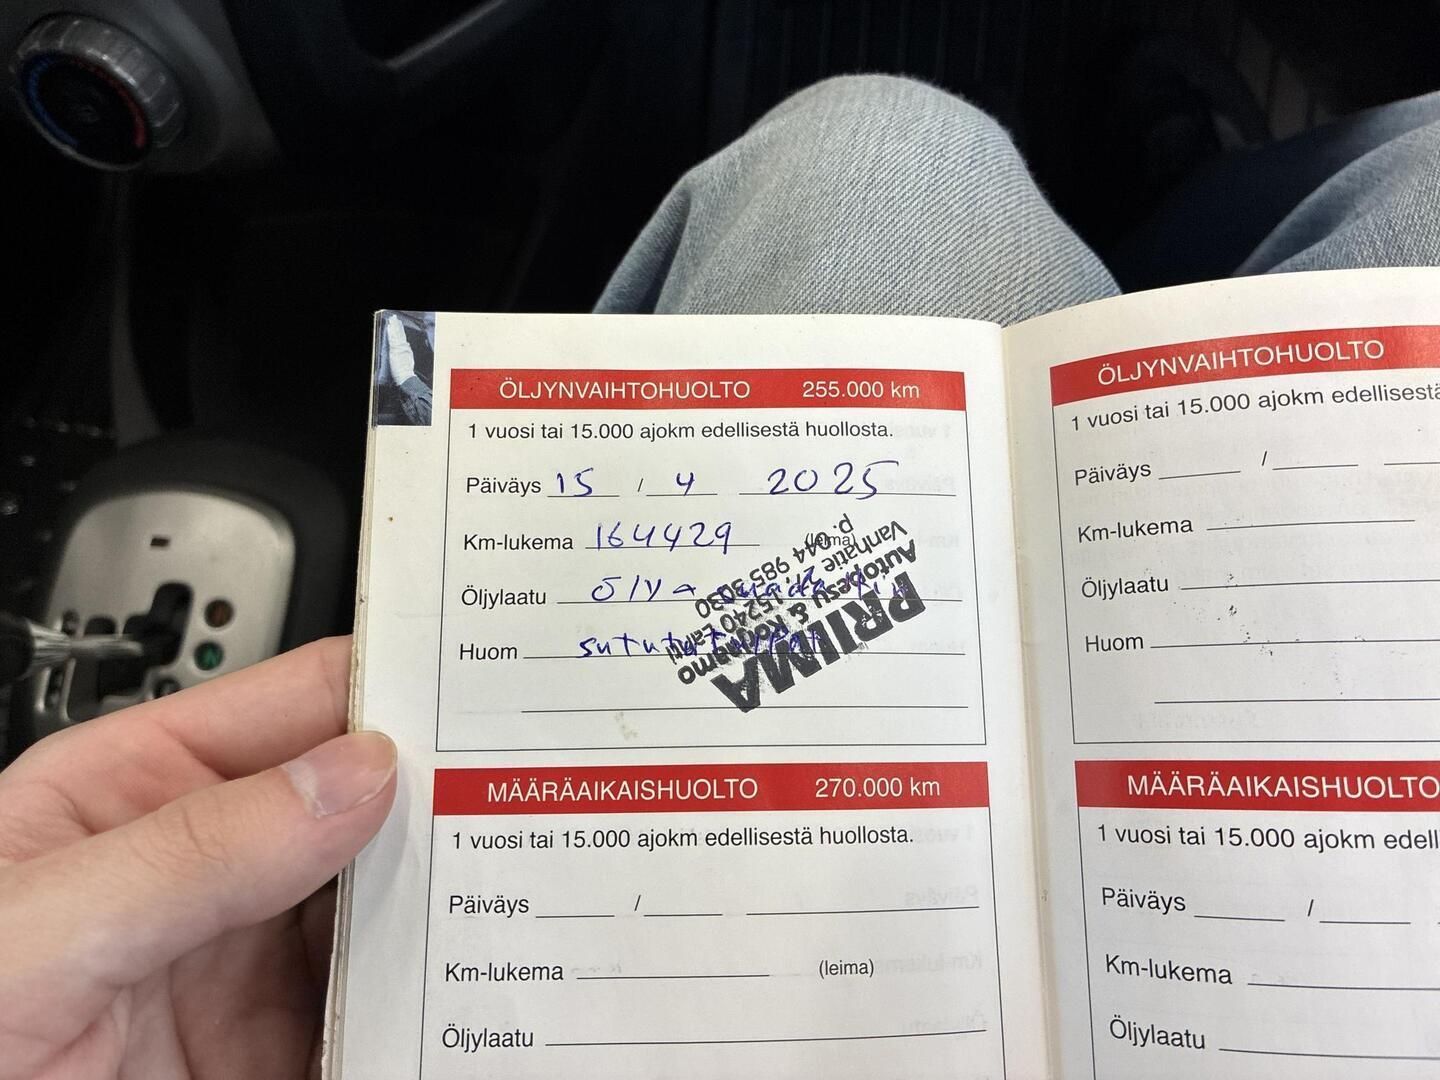 ÖLJYNVAIHTOHUOLTO 255.000 km
1 vuosi tai 15.000 ajokm edellisestä huollosta.
Päiväys 15 / 4 2025
Km-lukema 164429 (leima)
Öljylaatu
Huom
PRIIMA
Autopesu &
Vanhatie 27, 15240 Lahti
p. 044 985 3030
MÄÄRÄAIKAISHUOLTO 270.000 km
1 vuosi tai 15.000 ajokm edellisestä huollosta.
Päiväys /
Km-lukema (leima)
Öljylaatu
ÖLJYNVAIHTOHUOLTO
1 vuosi tai 15.000 ajokm edellisestä
Päiväys /
Km-lukema
Öljylaatu
Huom
MÄÄRÄAIKAISHUOLTO
1 vuosi tai 15.000 ajokm edell
Päiväys /
Km-lukema
Öljylaatu
N